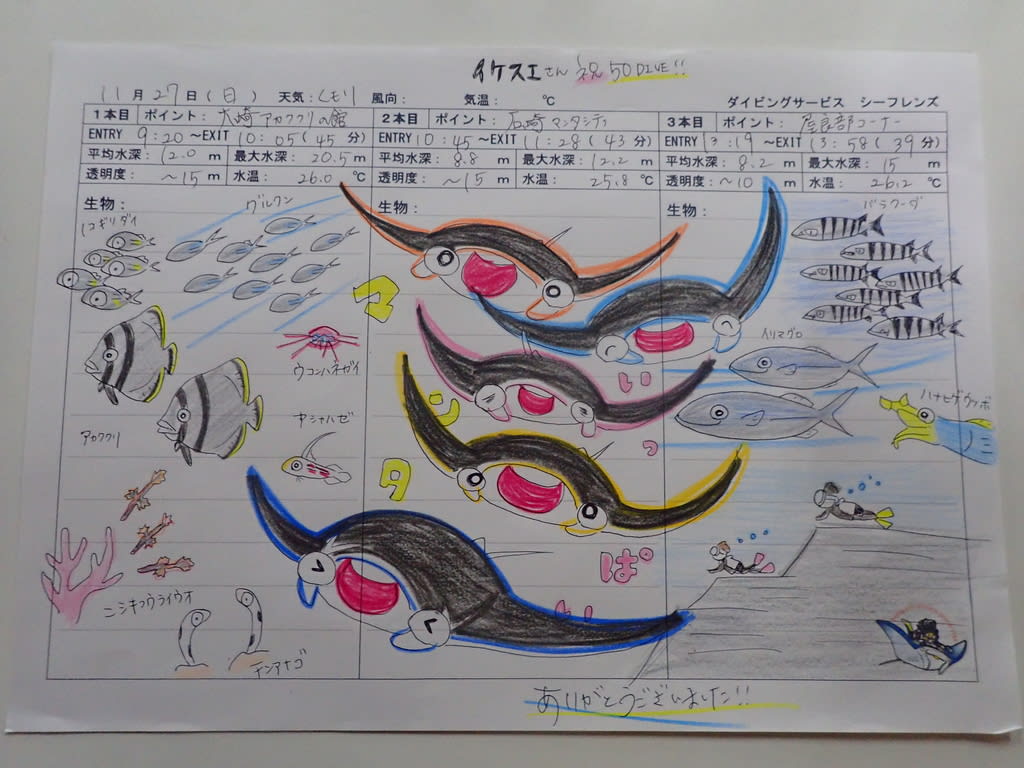 イケスエさん 祝 50 DIVE!!
11月27日(日) 天気:くもり 風向: 気温: ℃ ダイビングサービス シーフレンズ
1本目 ポイント: 大崎アカククリの館
ENTRY 9:20 ~EXIT 10:05(45分)
平均水深: 12.0 m 最大水深: 20.5 m
透明度: ~15 m 水温: 26.0 ℃
生物:
2本目 ポイント: 石崎マンタシティ
ENTRY 10:45 ~EXIT 11:28(43分)
平均水深: 8.8 m 最大水深: 12.2 m
透明度: ~15 m 水温: 25.8 ℃
生物:
3本目 ポイント: 屋良部コーナー
ENTRY 13:19 ~EXIT 13:58(39分)
平均水深: 8.2 m 最大水深: 15 m
透明度: ~10 m 水温: 26.2 ℃
生物:
グルクン
ノコギリダイ
ウコンハネガイ
アカククリ
ヤシャハゼ
ニシキフウライウオ
チンアナゴ
マンタ
いっぱい
バラクーダ
イソマグロ
ハナヒゲウツボ
ありがとうございました!!